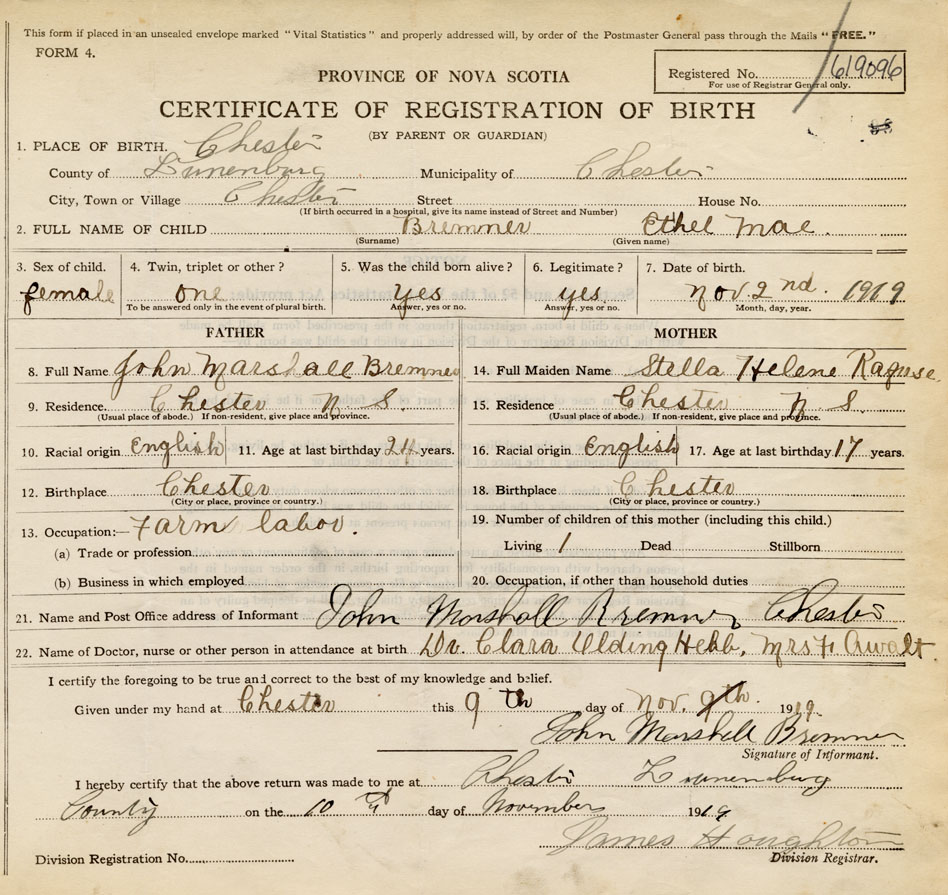 This form if placed in an unsealed envelope marked "Vital Statistics" and properly addressed will, by order of the Postmaster General pass through the Mails "FREE."
FORM 4.
PROVINCE OF NOVA SCOTIA
Registered No. 619096
For use of Registrar General only.
CERTIFICATE OF REGISTRATION OF BIRTH
(BY PARENT OR GUARDIAN)
1. PLACE OF BIRTH. Chester
County of Lunenburg Municipality of Chester
City, Town or Village Chester Street House No.
(If birth occurred in a hospital, give its name instead of Street and Number)
2. FULL NAME OF CHILD Bremner Ethel Mae.
(Surname) (Given name)
3. Sex of child. 4. Twin, triplet or other? 5. Was the child born alive? 6. Legitimate? 7. Date of birth.
female one yes yes Nov. 2nd. 1919
To be answered only in the event of plural birth. Answer, yes or no. Answer, yes or no. Month, day, year.
FATHER MOTHER
8. Full Name John Marshall Bremner 14. Full Maiden Name Stella Helene
9. Residence. Chester N. S. 15. Residence Chester N. S.
(Usual place of abode.) If non-resident, give place and province. (Usual place of abode.) If non-resident, give place and province.
10. Racial origin English 11. Age at last birthday 24 years. 16. Racial origin English 17. Age at last birthday 17 years.
12. Birthplace Chester 18. Birthplace Chester
(City or place, province or country.) (City or place, province or country.)
13. Occupation:— Farm labor. 19. Number of children of this mother (including this child.)
(a) Trade or profession Living 1 Dead Stillborn
(b) Business in which employed 20. Occupation, if other than household duties
21. Name and Post Office address of Informant John Marshall Bremner Chester
22. Name of Doctor, nurse or other person in attendance at birth Dr. Clara Olding Hebb, Mrs F. Awalt.
I certify the foregoing to be true and correct to the best of my knowledge and belief.
Given under my hand at Chester this 9th day of Nov. 9th. 1919.
John Marshall Bremner
Signature of Informant.
I hereby certify that the above return was made to me at Chester Lunenburg
County on the 10 day of November 1919
James Houghton
Division Registration No. Division Registrar.